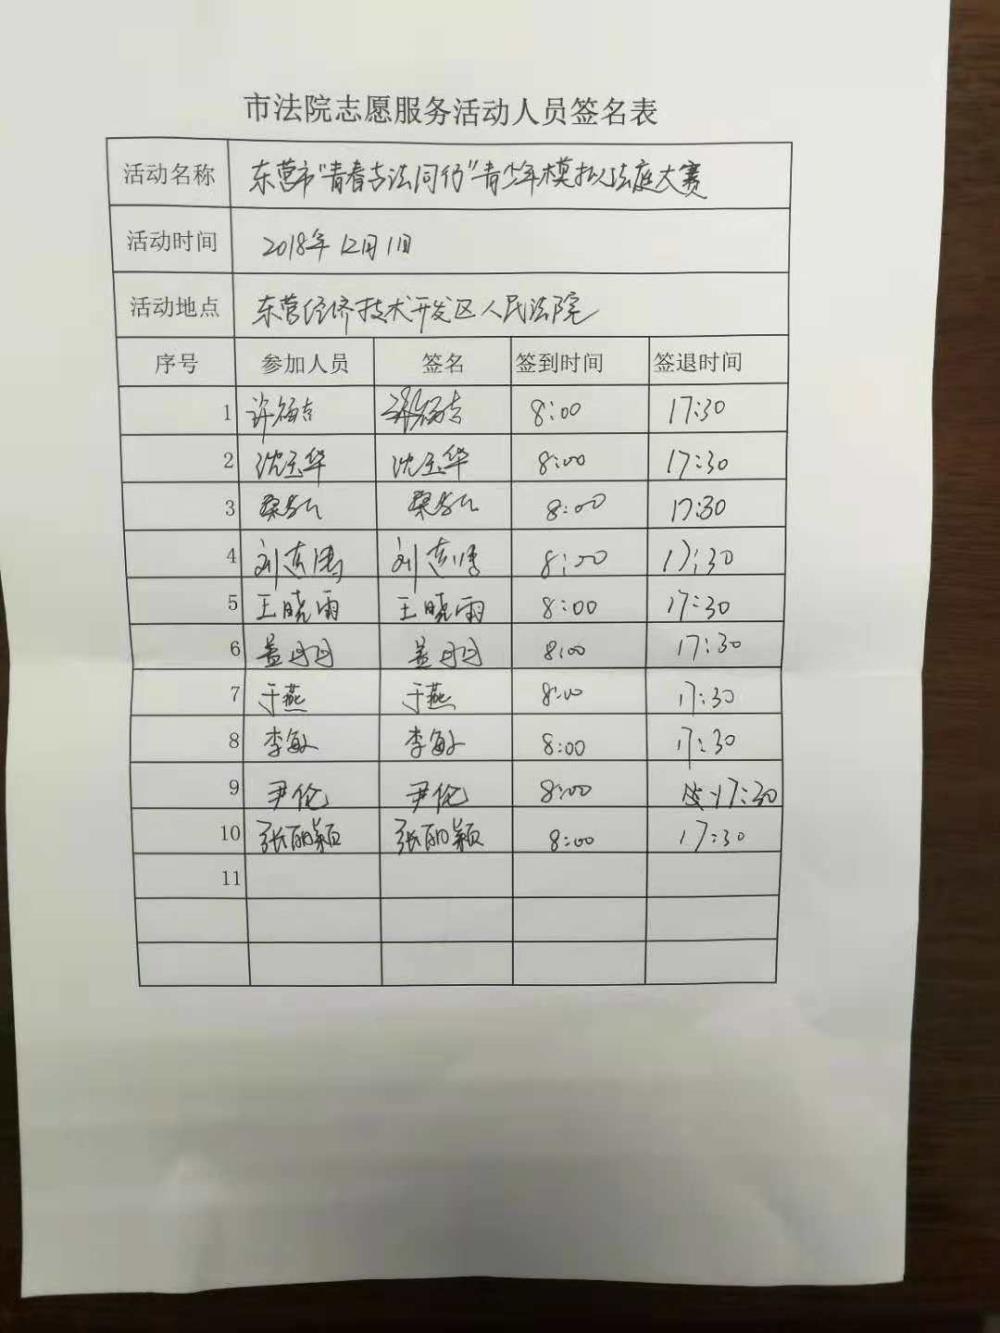 市法院志愿服务活动人员签名表
活动名称 东营市"青春与法同行"青少年模拟法庭大赛
活动时间 2018年12月1日
活动地点 东营经济技术开发区人民法院
序号 参加人员 签名 签到时间 签退时间
1 8:00 17:30
2 沈玉华 沈玉华 8:00 17:30
3 8:00 17:30
4 8:00 17:30
5 王晓雨 王晓雨 8:00 17:30
6 盖丹丹 盖丹丹 8:00 17:30
7 于燕 于燕 8:00 17:30
8 李敏 李敏 8:00 17:30
9 尹伦 尹伦 8:00 17:30
10 张丽颖 张丽颖 8:00 17:30
11